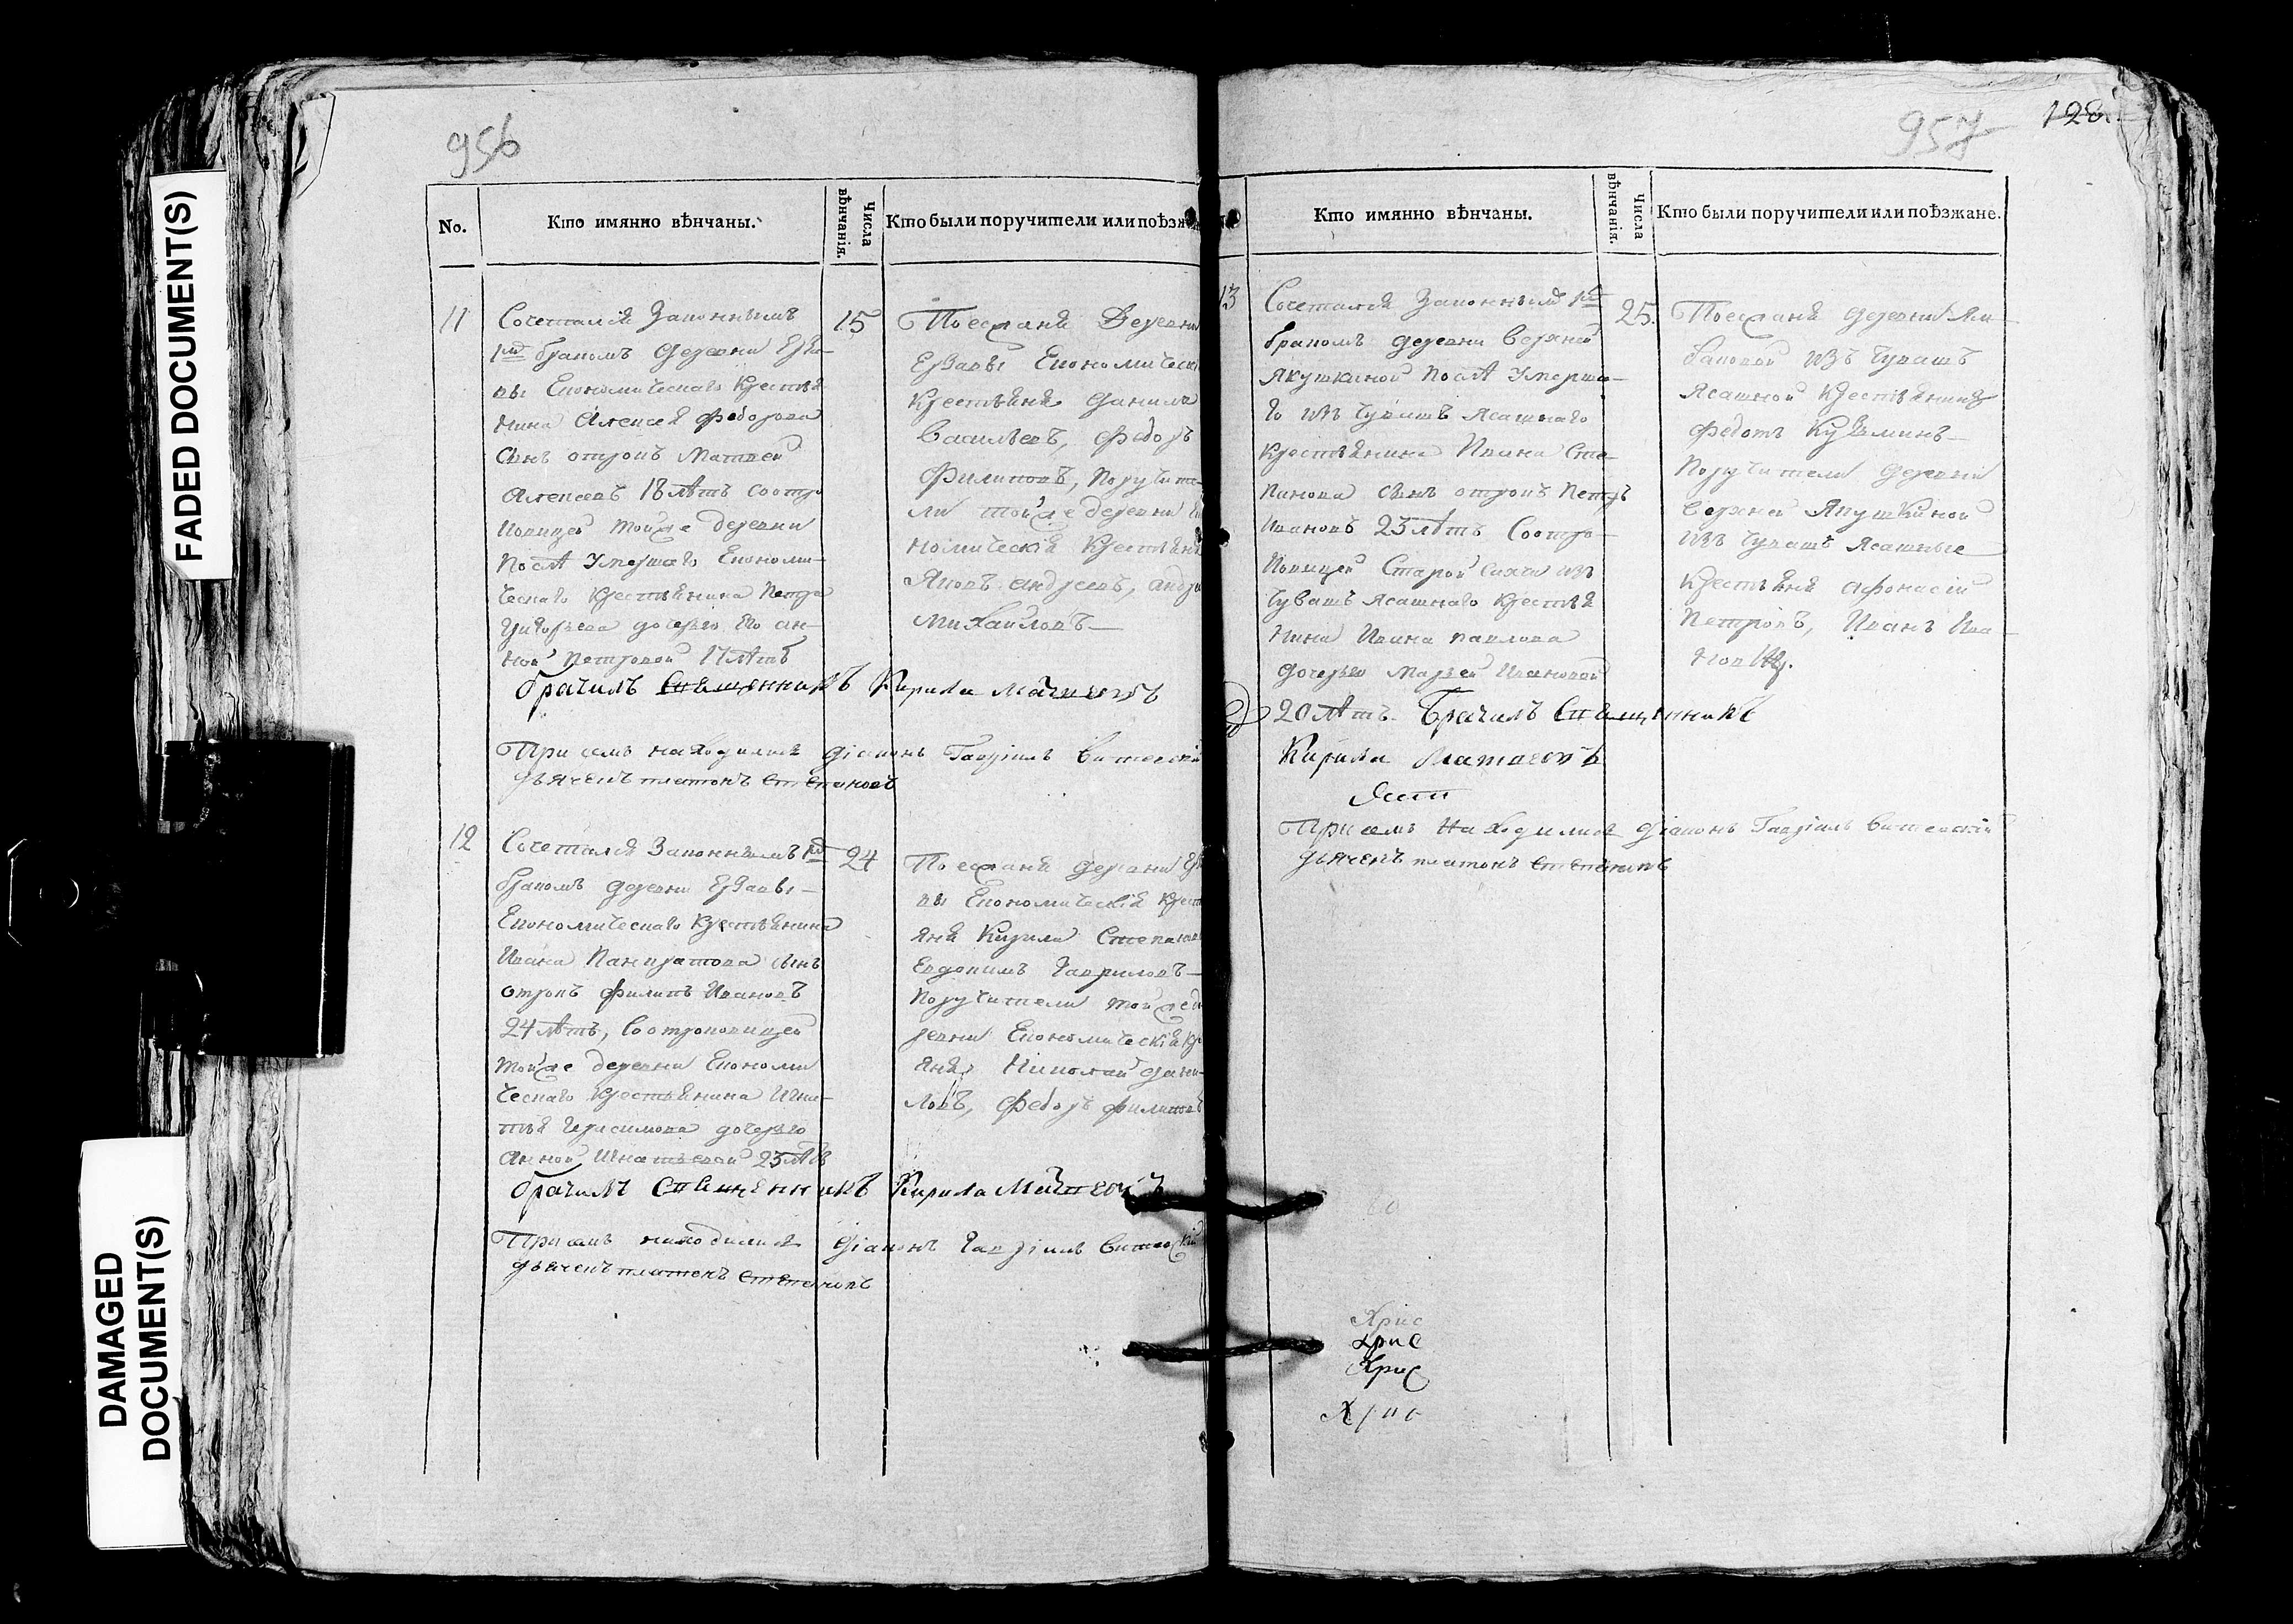 FADED DOCUMENT(S)
DAMAGED
DOCUMENT(S)
956
No.
Кто имянно вѣнчаны.
Числа
вѣнчанія.
Кто были поручители или поѣзж
11
Сочетался Законнымъ
1мъ бракомъ деревни
вы Економическаго крестья
нина Алексея Федорова
сынъ отрокъ Матвей
Алексеевъ 18 лѣтъ соотро
ковицей тойже деревни
послѣ умершаго Економи-
ческаго крестьянина Петра
Григорьева дочерью его ан-
ной Петровой 17 лѣтъ
15
Поезжаня Деревни
Економически
крестьяня Данила
Васильевъ, Федоръ
Филиповъ, Поручите
ли тойже деревни Е
номическія крестьяня
Яковъ андреевъ, андре
Михайловъ
брачилъ Священникъ Кирила Матвеевъ
При семъ находился діаконъ Гавріилъ Витевскій
дьячекъ платонъ Степановъ
12
Сочетался Законнымъ 1мъ
бракомъ деревни
Економическаго крестьянина
Ивана Панкратова сынъ
отрокъ филипъ Ивановъ
24 лѣтъ, соотроковицей
тойже деревни Економи
ческаго крестьянина Игна-
тья Герасимова дочерью
Анной Игнатьевой 23 лѣтъ
24
Поезжаня деревни
вы Економическія крест
яня Кирила Степановъ
Евдокимъ Гавриловъ
Поручители тойжеде
ревни Економическія кр
яня Николай дани-
ловъ, Федоръ филиповъ
брачилъ Священникъ Кирила Матвеевъ
При семъ находился діаконъ Гавріилъ Витевскій
дьячекъ платонъ Степановъ
957
128
Кто имянно вѣнчаны.
Числа
вѣнчанія.
Кто были поручители или поѣзжане.
13
Сочетался Законнымъ 1мъ
бракомъ деревни Верхней
Якушкиной послѣ умерша-
го изъ Чувашъ Ясашнаго
крестьянина Ивана Сте-
панова сынъ отрокъ Петръ
Ивановъ 23 лѣтъ Соотро-
ковицей Старой изъ
Чувашъ Ясашнаго крестья
нина Ивана павлова
дочерью Марьей Ивановой
20 лѣтъ. Брачилъ Священникъ
Кирила Матвеевъ
25.
Поезжаня деревни
изъ Чувашъ
Ясашной крестьянинъ
Федотъ Кузминъ
Поручители деревни
Верхней Якушкиной
изъ Чувашъ Ясашные
крестьяня афонасій
Петровъ, Иванъ Ива-
новъ.
При семъ Находился діаконъ Гавріилъ Витевскій
дьячекъ платонъ Степановъ
Хрис
Хрис
Хрис
Хрис